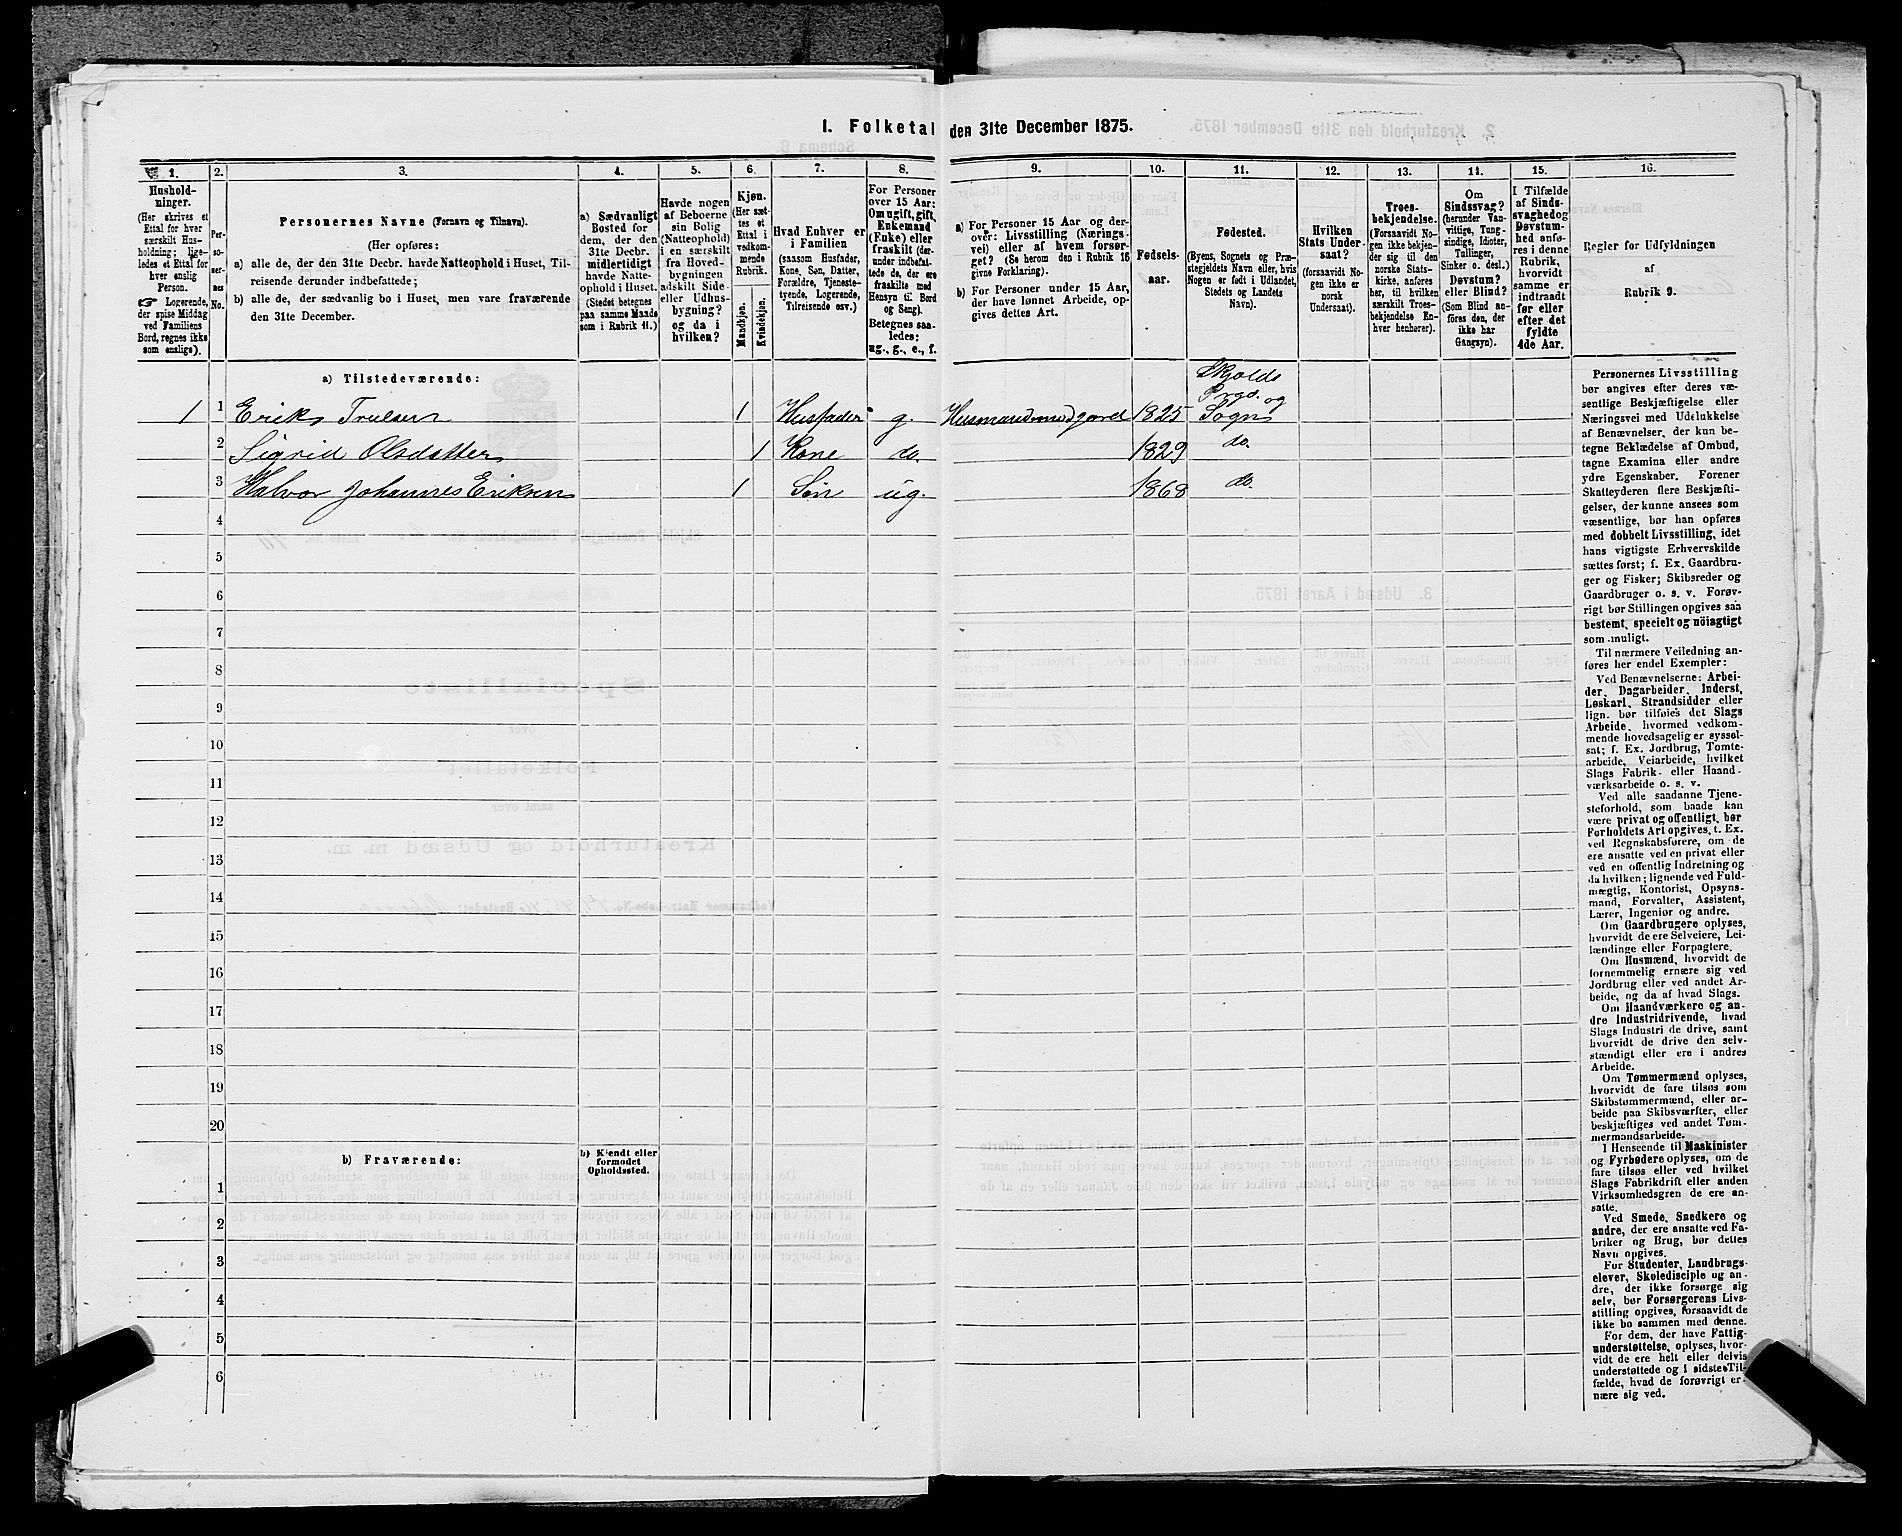 1. Folketal den 31te December 1875.
1.
Hushold-
ninger.
(Her skrives et
Ettal for hver
særskilt Hus-
holdning; lige-
ledes et Ettal for
hver enslig
Person.
☞ Logerende,
der spise Middag
ved Familiens
Bord, regnes ikke
som enslige).
2.
Per-
so-
ner-
nes
No.
3.
Personernes Navne (Fornavn og Tilnavn).
(Her opføres:
a) alle de, der den 31te Decbr. havde Natteophold i Huset, Til-
reisende derunder indbefattede;
b) alle de, der sædvanlig bo i Huset, men vare fraværende
den 31te December.
4.
a) Sædvanligt
Bosted for
dem, der den
31te Decbr.
midlertidigt
havde Natte-
ophold i Huset.
(Stedet betegnes
paa samme Maade
som i Rubrik 11.)
5.
Havde nogen
af Beboerne
sin Bolig
(Natteophold)
i en særskilt
fra Hoved-
bygningen
adskilt Side-
eller Udhus-
bygning?
og da i
hvilken?
6.
Kjøn.
(Her sæt-
tes et
Ettal i
vedkom-
mende
Rubrik.
Mandkjøn.
Kvindekjøn.
7.
Hvad Enhver er
i Familien
(saasom Husfader,
Kone, Søn, Datter,
Forældre, Tjeneste-
tyende, Logerende,
Tilreisende osv.)
8.
For Personer
over 15 Aar:
Om ugift, gift,
Enkemand
(Enke) eller
fraskilt (der-
under indbefat-
tede de, der ere
fraskilte med
Hensyn til Bord
og Seng).
Betegnes saa-
ledes:
ug., g., e., f.
9.
a) For Personer 15 Aar og der-
over: Livsstilling (Nærings-
vei) eller af hvem forsør-
get? (Se herom den i Rubrik 16
givne Forklaring).
b) For Personer under 15 Aar,
der have lønnet Arbeide, op-
gives dettes Art.
10.
Fødsels-
aar.
11.
Fødested.
(Byens, Sognets og Præ-
stegjeldets Navn eller, hvis
Nogen er født i Udlandet,
Stedets og Landets
Navn).
12.
Hvilken
Stats Under-
saat?
(forsaavidt No-
gen ikke er
norsk
Undersaat).
13.
Troes-
bekjendelse.
(Forsaavidt No-
gen ikke bekjen-
der sig til den
norske Stats-
kirke, anføres
her, til hvilken
særskilt Troes-
bekjendelse En-
hver henhører).
14.
Om
Sindssvag?
(herunder Van-
vittige, Tung-
sindige, Idioter,
Tullinger,
Sinker o. desl.)
Døvstum?
eller Blind?
(Som Blind an-
føres den, der
ikke har
Gangsyn).
15.
I Tilfælde
af Sinds-
svaghed og
Døvstum-
hed anfø-
res i denne
Rubrik,
hvorvidt
samme er
indtraadt
før eller
efter det
fyldte
4de Aar.
16.
Regler for Udfyldningen
af
Rubrik 9.
a) Tilstedeværende:
1 1 Erik Trulsen 1 Husfader g. Husmand med jord 1825 Skjolds Prgd. og Sogn
2 Sigrid Olsdatter 1 Kone do. 1829 do.
3 Halvor Johannes Eriksen 1 Søn ug. 1868 do.
4
5
6
7
8
9
10
11
12
13
14
15
16
17
18
19
20
b) Fraværende:
b) Kjendt eller
formodet
Opholdssted.
1
2
3
4
5
6
Personernes Livsstilling
bør angives efter deres væ-
sentlige Beskjæftigelse eller
Næringsvei med Udelukkelse
af Benævnelser, der kun be-
tegne Beklædelse af Ombud,
tagne Examina eller andre
ydre Egenskaber. Forener
Skatteyderen flere Beskjæfti-
gelser, der kunne ansees som
væsentlige, bør han opføres
med dobbelt Livsstilling, idet
hans vigtigste Erhvervskilde
sættes først; f. Ex. Gaardbru-
ger og Fisker; Skibsreder og
Gaardbruger o. s. v. Forøv-
rigt bør Stillingen opgives saa
bestemt, specielt og nöiagtigt
som muligt.
Til nærmere Veiledning an-
føres her endel Exempler:
Ved Benævnelserne: Arbei-
der, Dagarbeider, Inderst,
Løskarl, Strandsidder eller
lign. bør tilføies det Slags
Arbeide, hvormed vedkom-
mende hovedsagelig er syssel-
sat; f. Ex. Jordbrug, Tomte-
arbeide, Veiarbeide, hvilket
Slags Fabrik- eller Haand-
værksarbeide o. s. v.
Ved alle saadanne Tjene-
steforhold, som baade kan
være privat og offentligt, bør
Forholdets Art opgives, t. Ex.
ved Regnskabsførere, om de
ere ansatte ved en privat eller
ved en offentlig Indretning og
da hvilken; lignende ved Fuld-
mægtig, Kontorist, Opsyns-
mand, Forvalter, Assistent,
Lærer, Ingeniør og andre.
Om Gaardbrugere oplyses,
hvorvidt de ere Selveiere, Lei-
lændinge eller Forpagtere.
Om Husmænd, hvorvidt de
fornemmelig ernære sig ved
Jordbrug eller ved andet Ar-
beide, og da af hvad Slags.
Om Haandværkere og an-
dre Industridrivende, hvad
Slags Industri de drive, samt
hvorvidt de drive den selv-
stændigt eller ere i andres
Arbeide.
Om Tømmermænd oplyses,
hvorvidt de fare tilsøs som
Skibstømmermænd, eller ar-
beide paa Skibsværfter, eller
beskjæftiges ved andet Tøm-
mermandsarbeide.
I Henseende til Maskinister
og Fyrbødere oplyses, om de
fare tilsøs eller ved hvilket
Slags Fabrikdrift eller anden
Virksomhedsgren de ere an-
satte.
Ved Smede, Snedkere og
andre, der ere ansatte ved Fa-
briker og Brug, bør dettes
Navn opgives.
For Studenter, Landbrugs-
elever, Skoledisciple og an-
dre, der ikke forsørge sig
selv, bør Forsørgerens Livs-
stilling opgives, forsaavidt de
ikke bo sammen med denne.
For dem, der have Fattig-
understøttelse, oplyses, hvor-
vidt de ere helt eller delvis
understøttede og i sidste Til-
fælde, hvad de forøvrigt er-
nære sig ved.